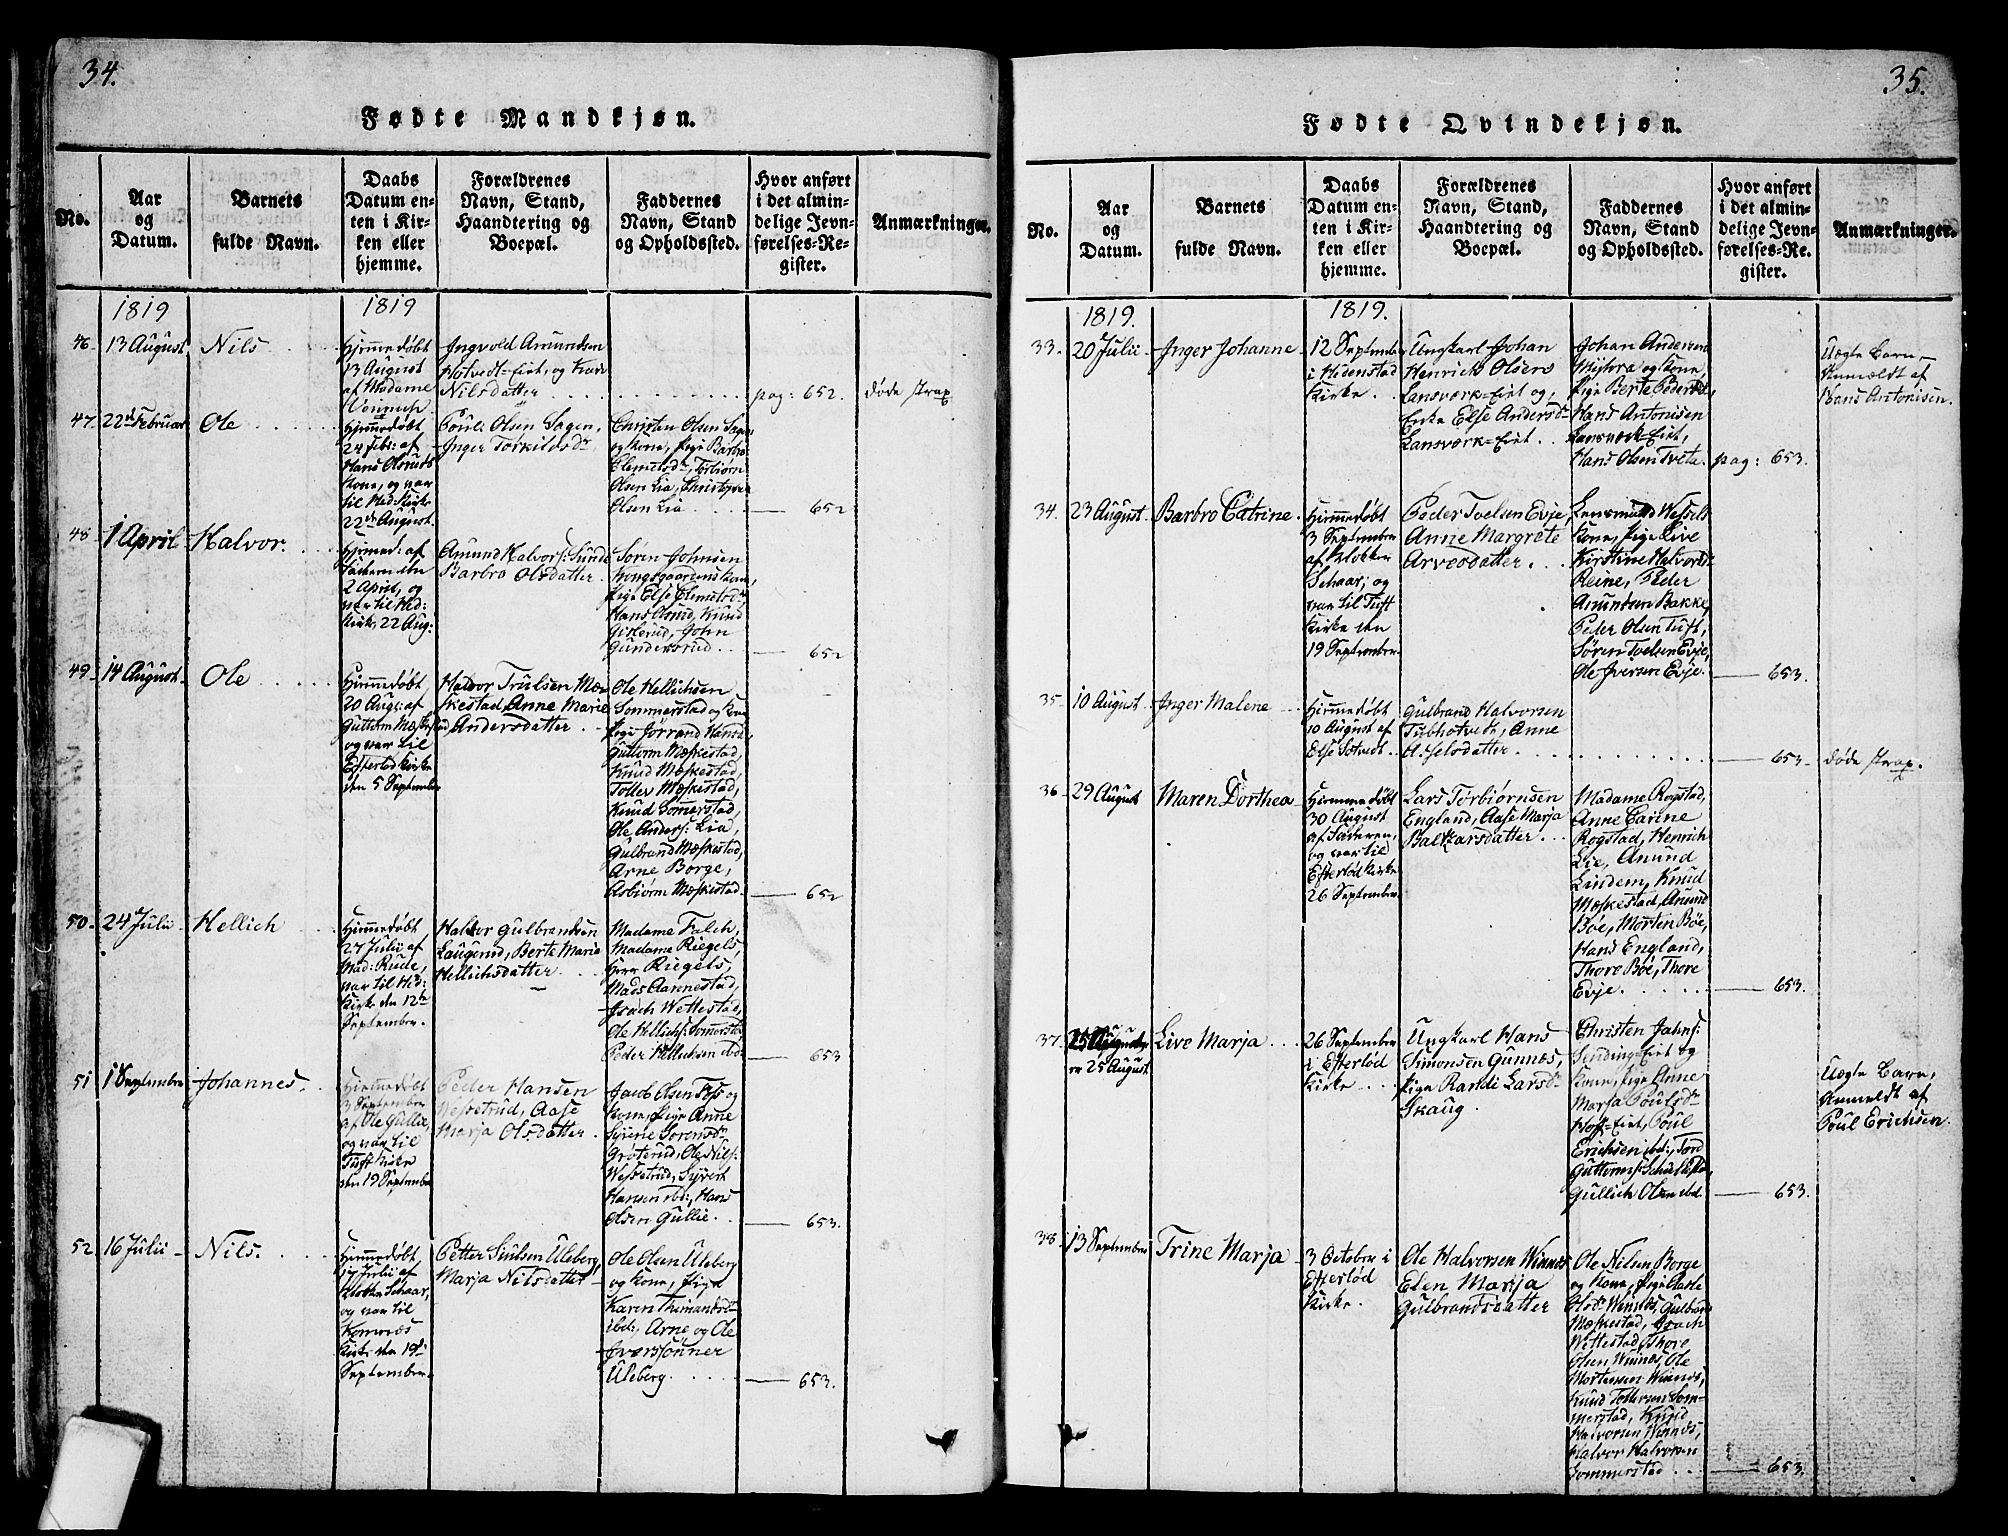 34.
Fødte Mandkjøn.
No.
Aar
og
Datum.
Barnets
fulde Navn.
Daabs
Datum en-
ten i Kir-
ken eller
hjemme.
Forældrenes
Navn, Stand,
Haandtering og
Boepæl.
Faddernes
Navn, Stand
og Opholdssted.
Hvor anført
i det almin-
delige Jevn-
førelses-Re-
gister.
Anmærkninger.
1819
1819
46.
13 August
Nils
Hjemmedøbt
13 August
af Madame
Ingvold Amundsen
Hotvedt-Eiet, og
Nilsdatter
pag: 652.
døde strax
47.
22de Februar
Ole
Hjemmedøbt
24 Feb: af
Hans Olsruds
Kone, og var
til Hed: Kirke
22de August.
Poul Olsen Sagen,
Inger Torkildsdr
Christen Olsen Sagen
og Kone, Pige Barbro
Clemetsdr, Torbiørn
Olsen Lia, Christopher
Olsen Lia
652
48
1 April
Halvor.
Hjemmed: af
Faderen den
2 April, og
var til Hed:
Kirke, 22 Aug:
Amund Halvors: Sunde
Barbro Olsdatter.
Søren Johnsen
Kongsgaardens Kone,
Pige Else Clemetsdr
Hans Olsrud, Knud
Gislerud, John
Gundersrud.
652
49
14 August
Ole
Hjemmedøbt
20 Aug: af
Guttorm Mæskestad
og var til
Efterløds Kirke
den 5 September
Halvor Trulsen Mæ-
skestad, Anne Marie
Andersdatter
Ole Hellichsen
Sommerstad og Kone
Pige Jørrand Hansd:
Guttorm Mæskestad,
Knud Mæskestad,
Toller Mæskestad,
Knud Somerstad,
Ole Anders: Lia,
Gulbrand Mæskestad,
Arne Borge,
Asbiørn Mæskestad.
652
50.
24 Julii
Hellich
Hjemmedøbt
27 Julii af
Mad: Rude,
var til Hed:
Kirke den 12te
September.
Halvor Gulbrandsen
Laugerud, Berte Marie
Hellichsdatter
Madame Falch,
Madame Riegels,
Herr Riegels,
Mads Aannestad,
Isach Wettestad,
Ole Hellichs: Somerstad
Peder Hellichsen ibd:
653
51
1 September
Johannes.
Hjemmedøbt
3 September
af Ole Gullie,
og var til
Tuft Kirke
den 19 September
Peder Hansen
Wessetrud, Aase
Marja Olsdatter.
Jacob Olsen Foss og
Kone, Pige Anne
Sørensdr
Grøterud, Ole Nils:
Wessetrud, Syvert
Hansen ibd:, Hans
Olsen Gullie.
653.
52
16 Julii
Nils.
Hjemmedøbt
17 Julii af
Klokker Schaar,
og var til
Komnæs
Kirke den 19de
September.
Petter Uleberg,
Marja Nilsdatter
Ole Olsen Uleberg
og Kone, Pige
Karen Thimandsdr
ibd:, Arne og Ole
Iversønner
Uleberg.
653.
35.
Fødte Qvindekjøn.
No.
Aar
og
Datum.
Barnets
fulde Navn.
Daabs
Datum en-
ten i Kir-
ken eller
hjemme.
Forældrenes
Navn, Stand,
Haandtering og
Boepæl.
Faddernes
Navn, Stand
og Opholdssted.
Hvor anført
i det almin-
delige Jevn-
førelses-Re-
gister.
Anmærkninger.
1819.
1819.
33.
20 Julii
Inger Johanne
12 September
i Hedenstad
Kirke.
Ungkarl Johan
Henrich Olsen
Lansværk-Eiet og
Enke Else Andersdr
Lansværk-Eiet
Johan Andersen
og Kone,
Pige Berte Pedersdr
Hans Antonisen
Lansværk-Eiet,
Hans Olsen Tveta.
pag: 653.
Uægte Barn,
Anmeldt af
Hans Antonisen.
34.
23 August
Barbro Catrine.
Hjemmedøbt
3 September
af Klokker
Schaar, og
var til Tuft
Kirke den
19 September
Peder Tvelsen Evje,
Anne Margrete
Arvesdatter.
Lensmand Wessels
Kone, Pige Live
Kirstine Halvorsdr
Reine, Peder
Amundsen Bakke,
Peder Olsen Tuft,
Søren Tvelsen Evje,
Ole Iversen Evje.
653.
35
10 August
Inger Malene
Hjemmedøbt
10 August af
Else Sotvedt
Gulbrand Halvorsen
Anne
Axelsdatter
653.
døde strax.
36
29 August
Maren Dorthea
Hjemmedøbt
30 August
af Faderen,
og var til
Efterløds Kirke
26 September.
Lars Torbiørnsen
England, Aase Marja
Baltzarsdatter
Madame Rogstad,
Anne Carine
Rogstad, Henrich
Lie, Amund
Lindem, Knud
Mæskestad, Amund
Bøe, Morten Bøe,
Hans England,
Thore Bøe, Thore
Evje.
653.
37.
25 August
Live Marja
26 September
i Efterløds
Kirke
Ungkarl Hans
Simonsen Gunnæs,
Pige Randi Larsdr
Skaug.
Christen Jahns:
Sinding-Eiet og
Kone, Pige Anne
Marja Poulsdr
Hoff-Eiet, Poul
Erichsen ibd:, Tord
Guttorms:
Gullich Olsen ibd:
653.
Uægte Barn,
Anmeldt af
Poul Erichsen.
38.
13 September
Trine Marja
3 October i
Efterløds
Kirke.
Ole Halvorsen Winnes
Eden Marja
Gulbrandsdatter
Ole Nilsen Borge
og Kone, Pige Aasle
Olsdr Winnes, Gulbrand
Mæskestad, Isach
Wettestad, Thore
Olsen Winnes, Ole
Mortensen Winnes,
Knud Tollersen Som-
merstad, Knud
Halvorsen Winnes,
Halvor Halvorsen
Sommerstad
653.